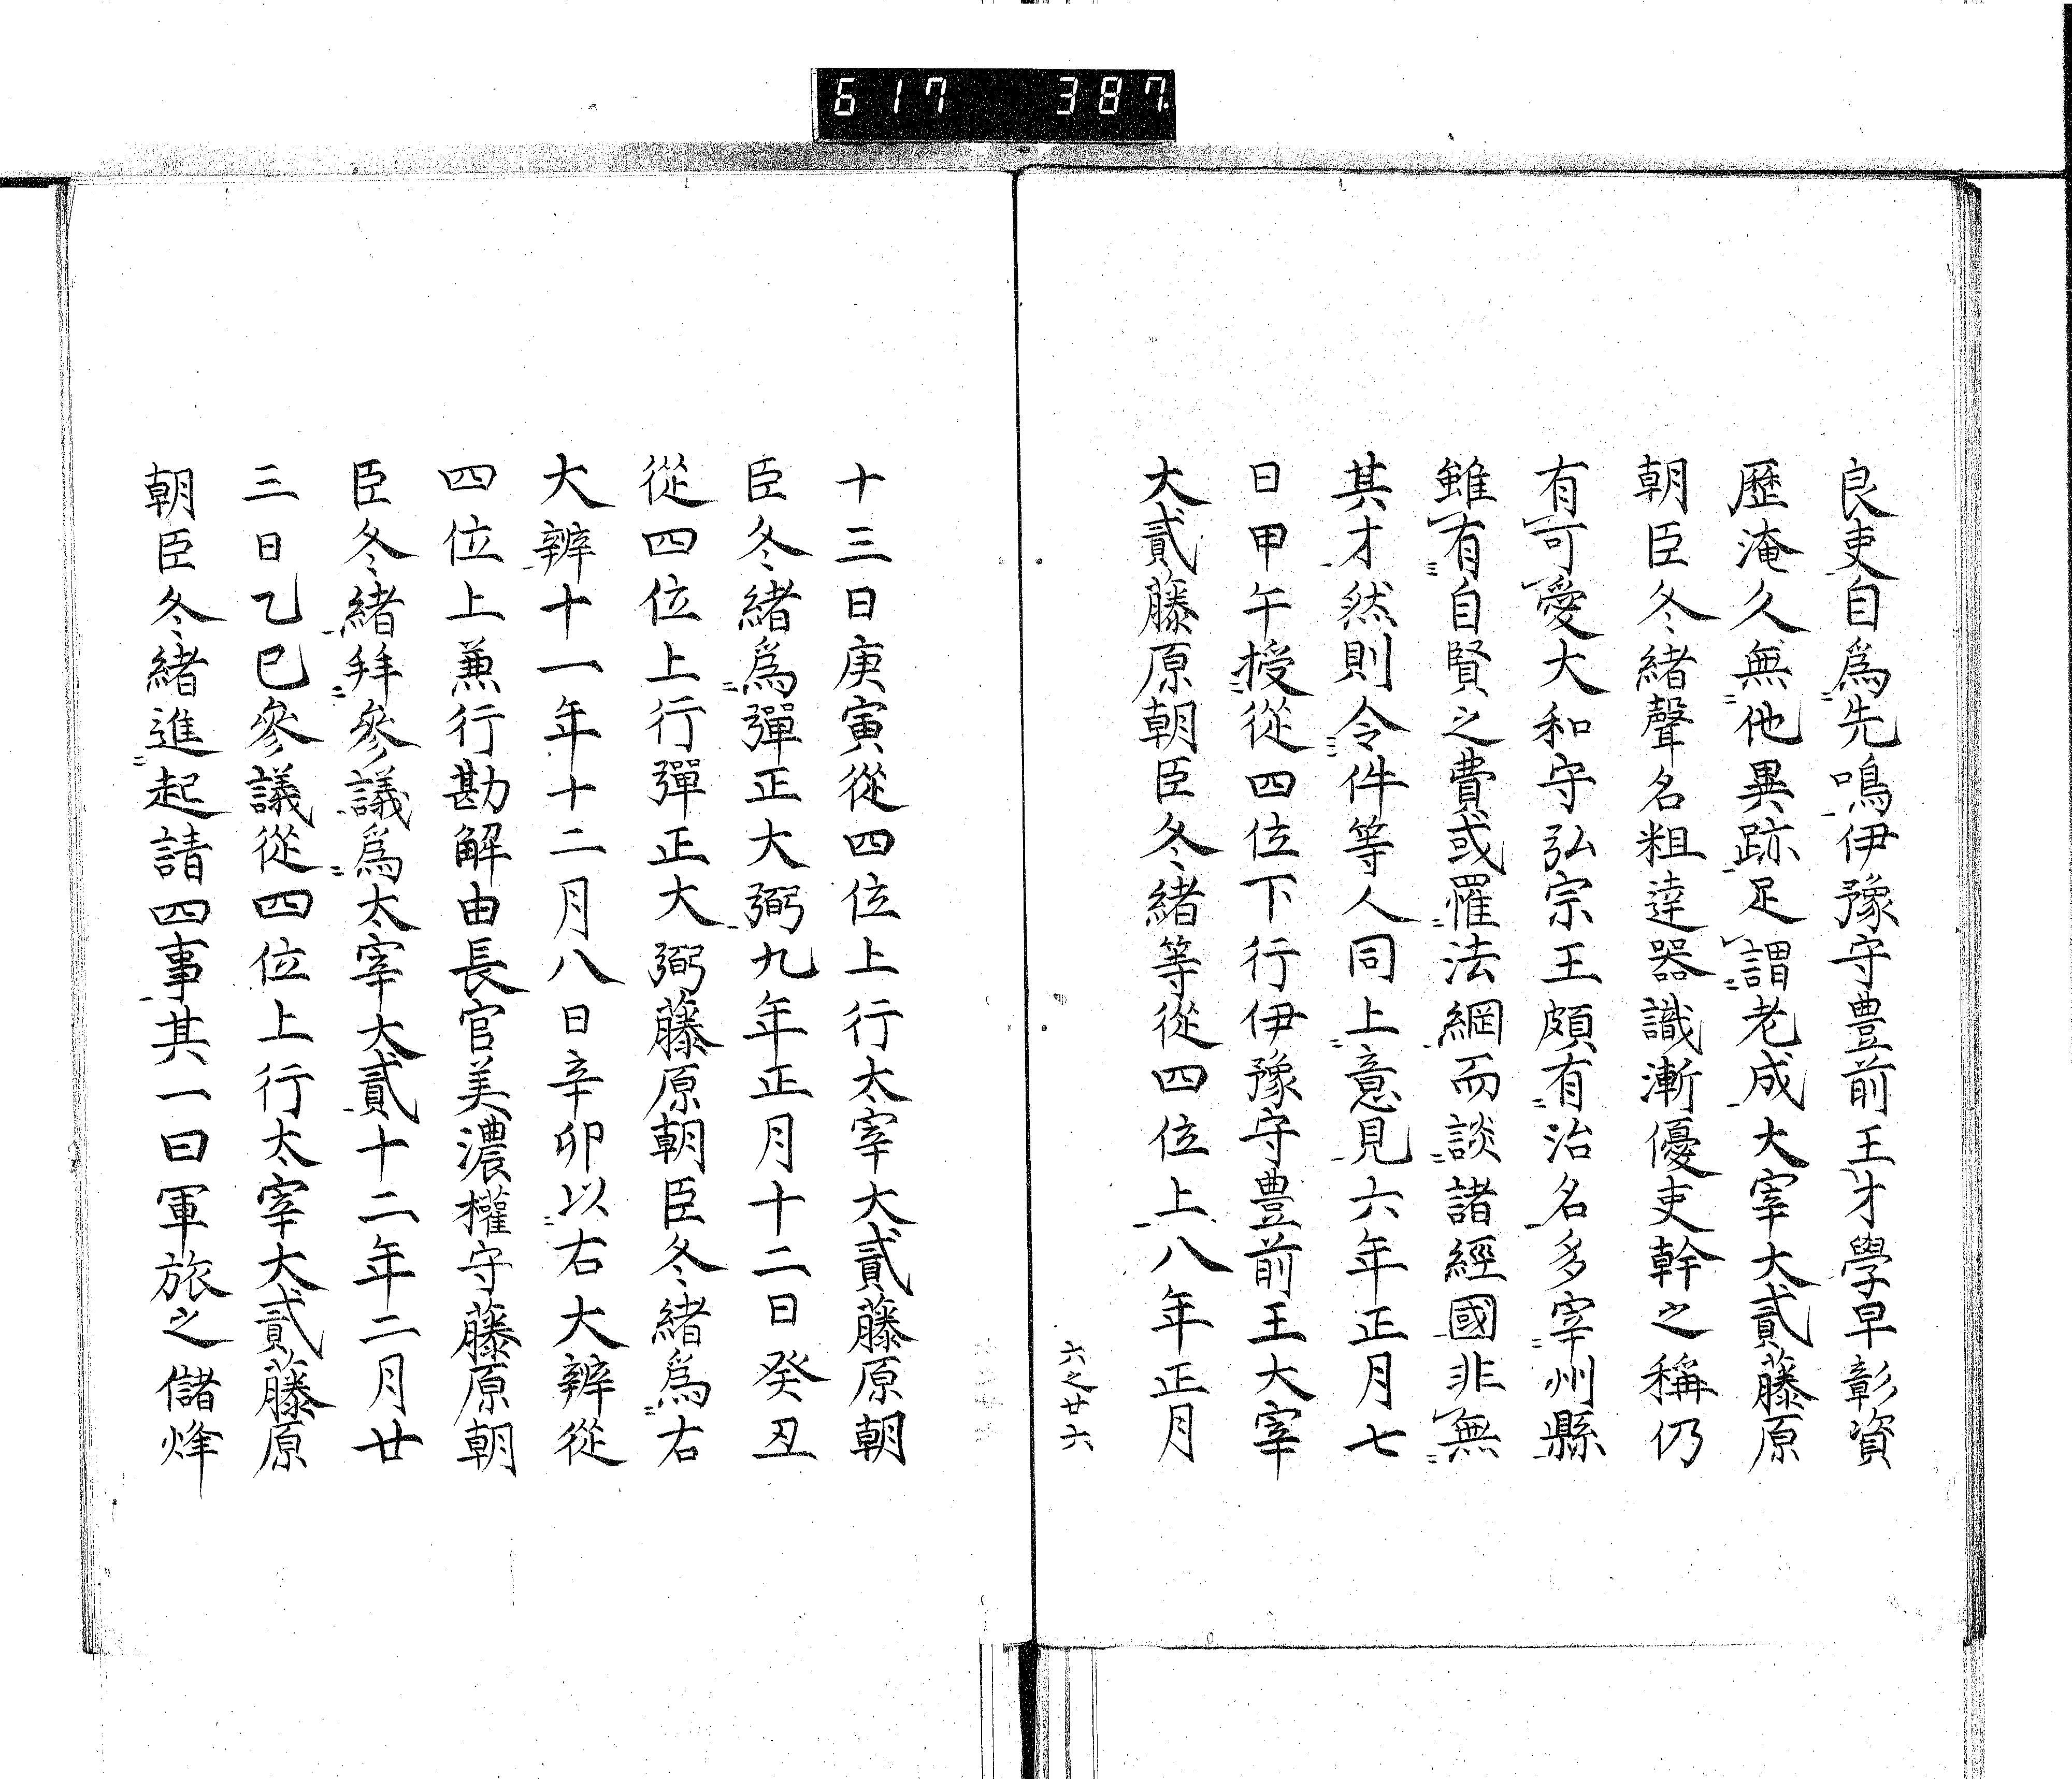 617 387
良吏自為先鳴伊豫守豊前王才學早彰資
歷淹久無他異跡足謂老成大宰大貳藤原
朝臣冬緒聲名粗達器識漸優吏幹之稱仍
有可愛大和守弘宗王頗有治名多宰州縣
雖有自賢之費或罹法網而談諸經國非無
其才然則令件等人同上意見六年正月七
日甲午授從四位下行伊豫守豊前王大宰
大貳藤原朝臣冬緒等從四位上八年正月
六之廿六
十三日庚寅從四位上行太宰大貳藤原朝
臣冬緒爲彈正大弼九年正月十二日癸丑
從四位上行彈正大弼藤原朝臣冬緒爲右
大辨十一年十二月八日辛卯以右大辨從
四位上兼行勘解由長官美濃權守藤原朝
臣冬緒拜參議爲太宰大貳十二年二月廿
三日乙巳參議從四位上行太宰大貳藤原
朝臣冬緒進起請四事其一曰軍旅之儲烽